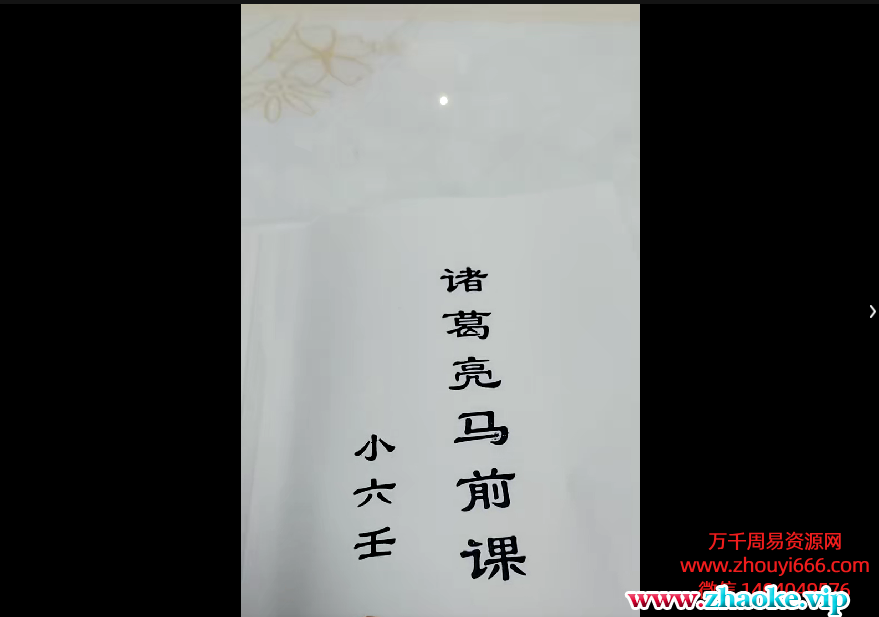 诸葛亮马前课
小六壬
万千周易资源网
www.zhouyi666.com
微信
www.zhaoke.vip